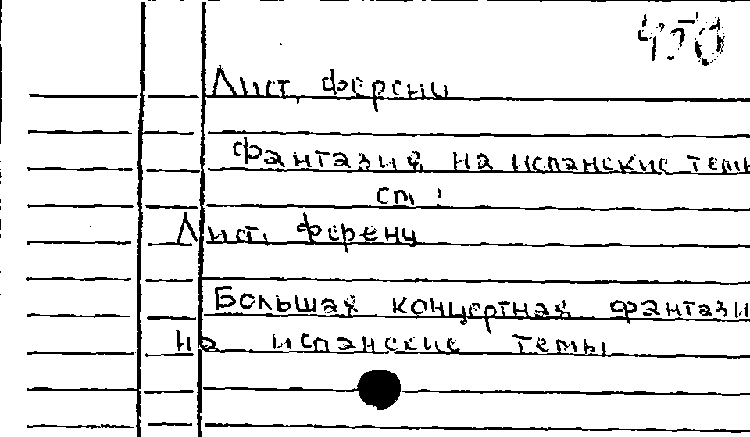 450
Лист, Ференц
Фантазия на испанские темы
см:
Лист, Ференц
Большая концертная фантази
на испанские темы